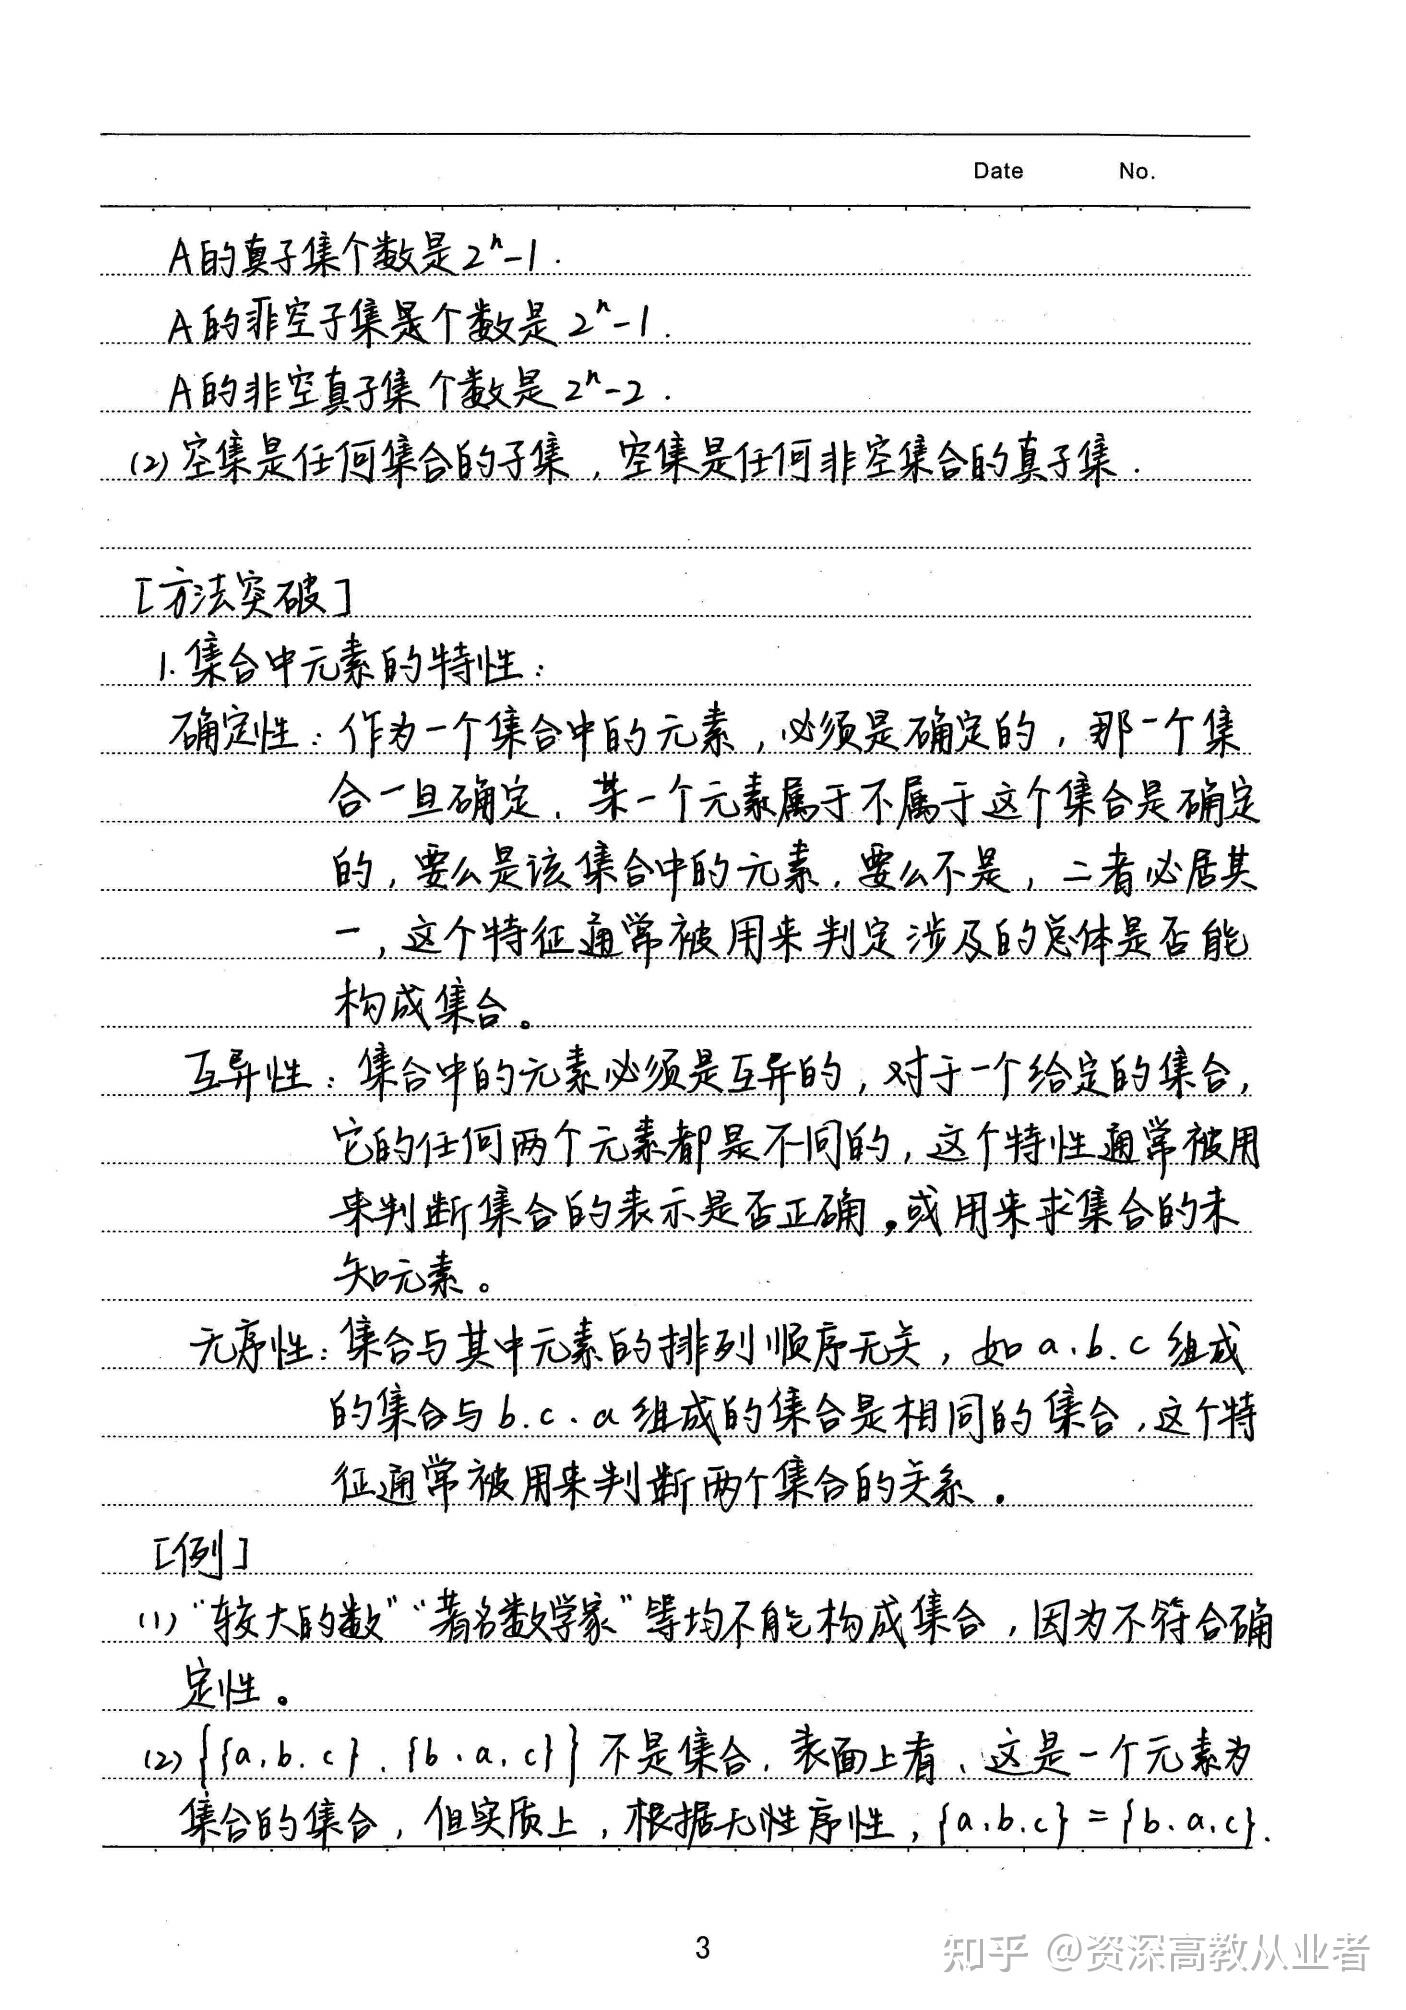 Date No.
A的真子集个数是2ⁿ-1.
A的非空子集是个数是2ⁿ-1.
A的非空真子集个数是2ⁿ-2.
(2)空集是任何集合的子集,空集是任何非空集合的真子集.
[方法突破]
1.集合中元素的特性:
确定性:作为一个集合中的元素,必须是确定的,那一个集
合一旦确定,某一个元素属于不属于这个集合是确定
的,要么是该集合中的元素,要么不是,二者必居其
一,这个特征通常被用来判定涉及的总体是否能
构成集合。
互异性:集合中的元素必须是互异的,对于一个给定的集合,
它的任何两个元素都是不同的,这个特性通常被用
来判断集合的表示是否正确,或用来求集合的未
知元素。
无序性:集合与其中元素的排列顺序无关,如a,b,c组成
的集合与b,c,a组成的集合是相同的集合,这个特
征通常被用来判断两个集合的关系.
[例]
(1)“较大的数”“著名数学家”等均不能构成集合,因为不符合确
定性。
(2){{a,b,c},{b,a,c}}不是集合,表面上看,这是一个元素为
集合的集合,但实质上,根据无性序性,{a,b,c}={b,a,c}.
3
知乎 @资深高教从业者